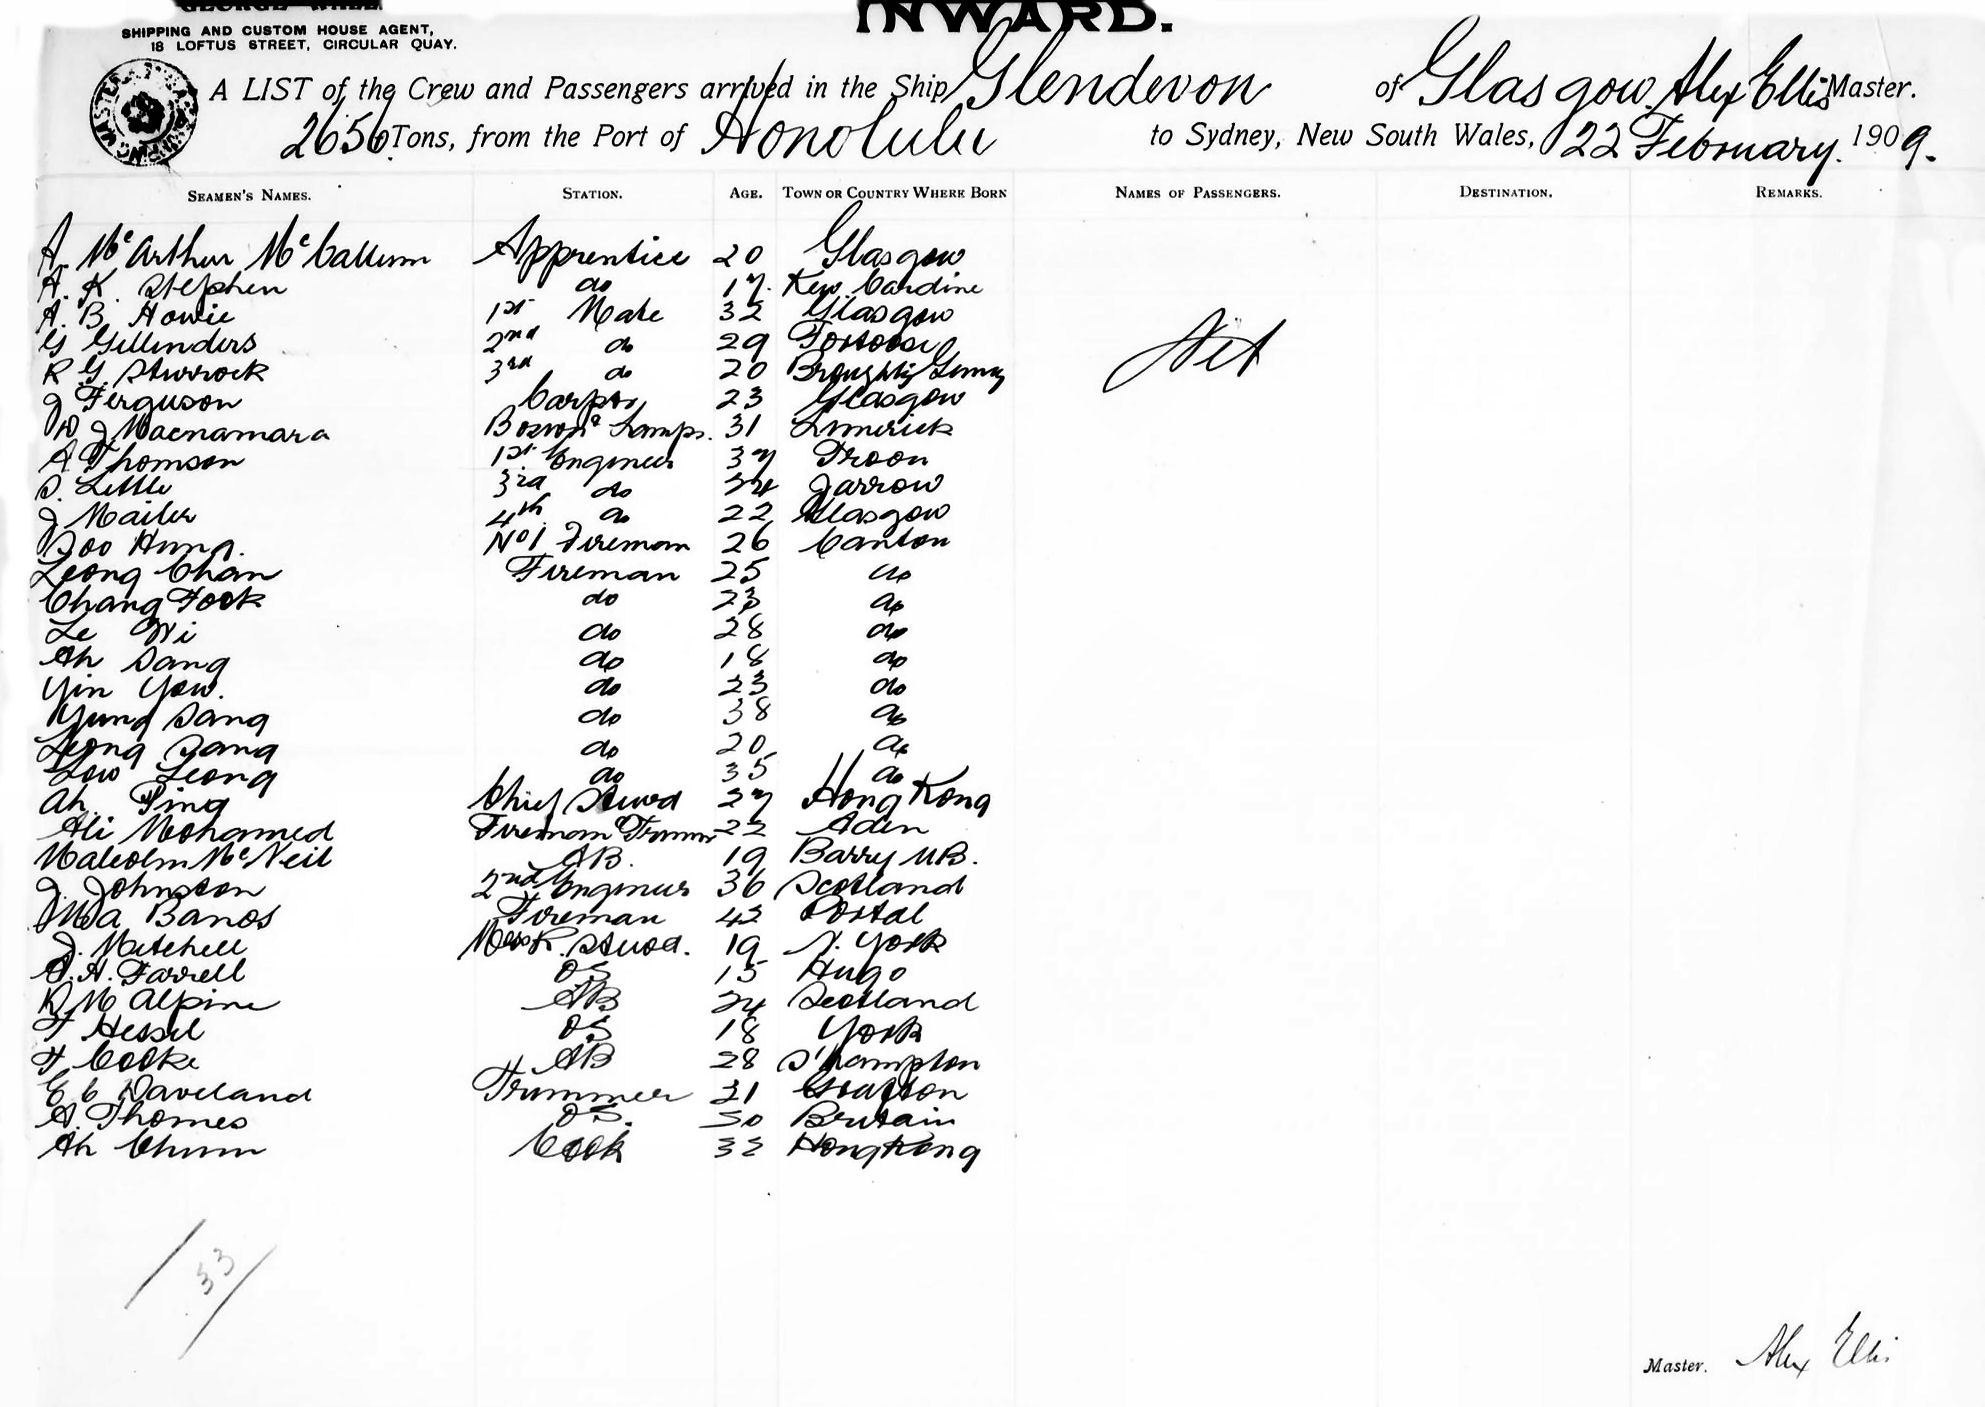 INWARD.
SHIPPING AND CUSTOM HOUSE AGENT,
18 LOFTUS STREET, CIRCULAR QUAY.
A LIST of the Crew and Passengers arrived in the Ship Glendevon of Glasgow, Alex Ellis Master.
2656 Tons, from the Port of Honolulu to Sydney, New South Wales, 22 February. 1909.
SEAMEN'S NAMES. STATION. AGE. TOWN OR COUNTRY WHERE BORN NAMES OF PASSENGERS. DESTINATION. REMARKS.
A. McArthur McCallum Apprentice 20 Glasgow
A. K. Stephen do 17 Cardine
A. B. Howie 1st Mate 32 Glasgow
G Gillenders 2nd do 29
Nil
R G. Sturrock 3rd do 20 Broughty
J Ferguson Carptr 23 Glasgow
J Macnamara Bosun & Lamps. 31 Limerick
A Thomson 1st Engineer 37 Troon
S. Little 3rd do 34 Jarrow
J Mailer 4th do 22 Glasgow
Soo Hung. No 1 Fireman 26 Canton
Leong Chan Fireman 25 do
Chang Fook do 23 do
Le Wi do 28 do
Ah Sang do 18 do
Yin Yow. do 23 do
Yung Sang do 38 do
Leong Sang do 20 do
Low Leong do 35 do
Ah Ping Chief Stwd 27 Hong Kong
Ali Mohamed Fireman & Trimmr 22 Aden
Malcolm McNeil AB. 19 Barry
J. Johnston 2nd Engineer 36 Scotland
Banos Fireman 42
J. Mitchell Mess R. Stwd. 19 N. York
H. Farrell OS 15 Hugo
R Mc Alpine AB 24 Scotland
F Hessel OS 18 York
F Cooke AB 28 S'hampton
E C Daveland Trimmer 21 Grafton
A. Thomes OS. 30 Britain
Ah Chum Cook 32 HongKong
33
Master. Alex Ellis